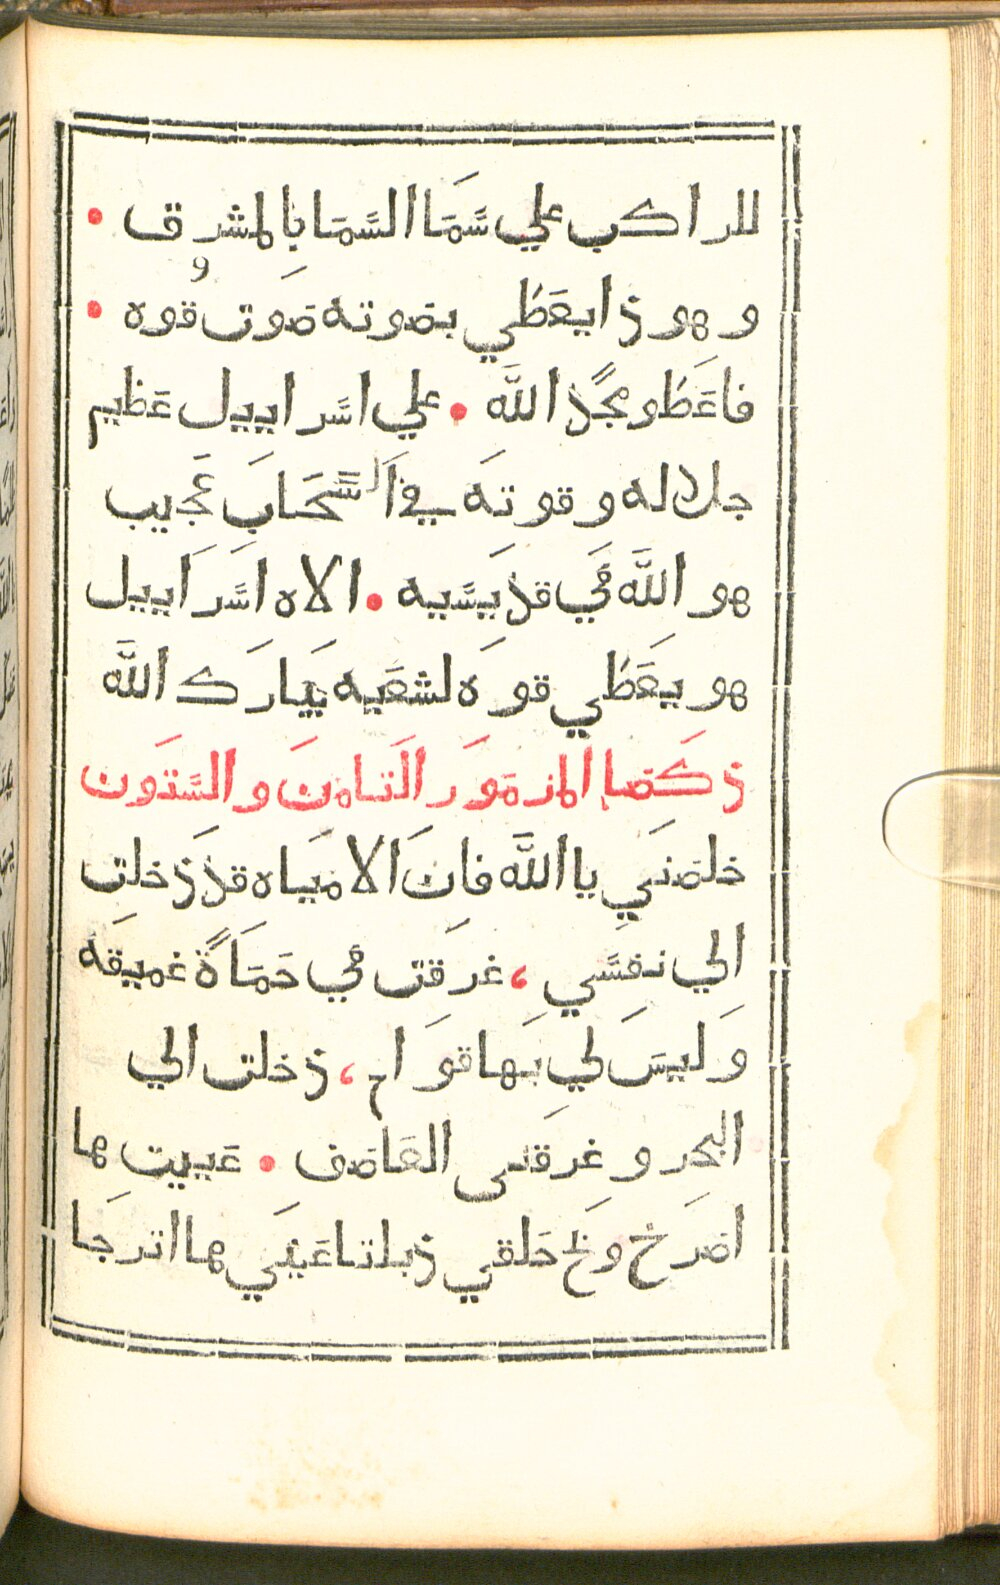 للراكب علي سَّمَا السَّمَا بالمشرق •
و هوذا يعَطي بصوته صَوت قوه •
فاعَطو مجَّدَ اللَّه • علي اسَّراييل عَظيم
جلاله و قوتَه في السَّحَابَ عَجيب
هو اللَّه في قدَيسَّيه • الاه اسَّرَاييل
هو يعَطي قوَه لشعَبه يتبارَك اللَّه
المزمَور الَتامنَ و السَّتَون
خلصَني يا اللَّه فانَ الامَياه قدَ دخلت
الي نفسَّي ، غرَقت في حَمَاةً غميقَه
وَليسَ لي بَها قوَام ، دخلت الي
البحر و غرَقني العَاصَف • عَييت مما
اصَرَخ وَبح حَلقي ذبلتا عَينَي مما اترجَا